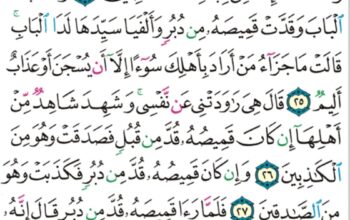 الْبَابَ وَقَدَّتْ قَمِيصَهُۥ مِن دُبُرٍ وَأَلْفَيَا سَيِّدَهَا لَدَا الْبَابِ ۚ
قَالَتْ مَا جَزَآءُ مَنْ أَرَادَ بِأَهْلِكَ سُوٓءًا إِلَّآ أَن يُسْجَنَ أَوْ عَذَابٌ
أَلِيمٌ ٢٥ قَالَ هِىَ رَٰوَدَتْنِى عَن نَّفْسِى ۚ وَشَهِدَ شَاهِدٌ مِّنْ
أَهْلِهَآ إِن كَانَ قَمِيصُهُۥ قُدَّ مِن قُبُلٍ فَصَدَقَتْ وَهُوَ مِنَ
الْكَٰذِبِينَ ٢٦ وَإِن كَانَ قَمِيصُهُۥ قُدَّ مِن دُبُرٍ فَكَذَبَتْ وَهُوَ
مِنَ الصَّٰدِقِينَ ٢٧ فَلَمَّا رَءَا قَمِيصَهُۥ قُدَّ مِن دُبُرٍ قَالَ إِنَّهُۥ